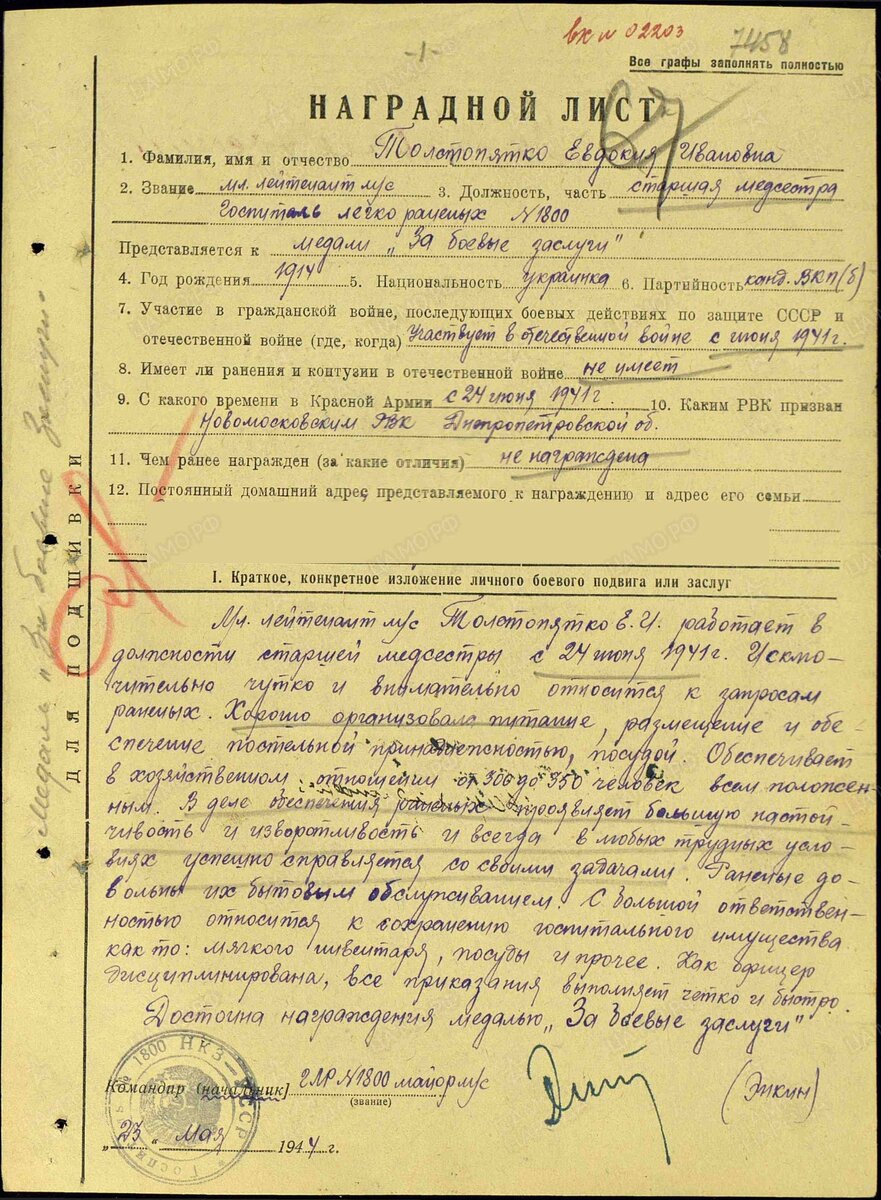 вх № 02203
7458
-1-
Все графы заполнять полностью
НАГРАДНОЙ ЛИСТ
1. Фамилия, имя и отчество Толстопятко Евдокия Ивановна
2. Звание мл. лейтенант м/с 3. Должность, часть старшая медсестра
Госпиталь легко раненых №1800
Представляется к медали „За боевые заслуги"
4. Год рождения 1914 5. Национальность украинка 6. Партийность канд. ВКП(б)
7. Участие в гражданской войне, последующих боевых действиях по защите СССР и
отечественной войне (где, когда) Участвует в отечественной войне с июня 1941г.
8. Имеет ли ранения и контузии в отечественной войне не имеет
9. С какого времени в Красной Армии с 24 июня 1941г 10. Каким РВК призван
Новомосковским РВК Днепропетровской об.
11. Чем ранее награжден (за какие отличия) не награждена
12. Постоянный домашний адрес представляемого к награждению и адрес его семьи
I. Краткое, конкретное изложение личного боевого подвига или заслуг
Мл. лейтенант м/с Толстопятко Е.И. работает в
должности старшей медсестры с 24 июня 1941г. Исклю-
чительно чутко и внимательно относится к запросам
раненых. Хорошо организовала питание, размещение и обе-
спечение постельной принадлежностью, посудой. Обеспечивает
в хозяйственном отношении от 300 до 350 человек всем положен-
ным. В деле обеспечения раненых проявляет большую настой-
чивость и изворотливость и всегда в любых трудных усло-
виях успешно справляется со своими задачами. Раненые до-
вольны их бытовым обслуживанием. С большой ответствен-
ностью относится к сохранению госпитального имущества
как то: мягкого инвентаря, посуды и прочее. Как офицер
дисциплинирована, все приказания выполняет четко и быстро.
Достойна награждения медалью „За боевые заслуги"
Командир (начальник) ГЛР №1800 майор м/с (Эткин)
(звание)
„23" Мая 1944 г.
ДЛЯ ПОДШИВКИ
Медаль „За боевые Заслуги"
1800 НКЗ СССР